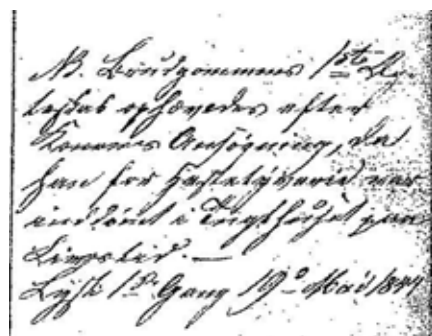 NB. Brudgommens 1ste Æg-
teskab ophævedes efter
Konens Ansögning, da
han for Hestetyverie var
inddömt i Tugthuset paa
Livstid. —
Lyst 1ste Gang 19de Mai 1844